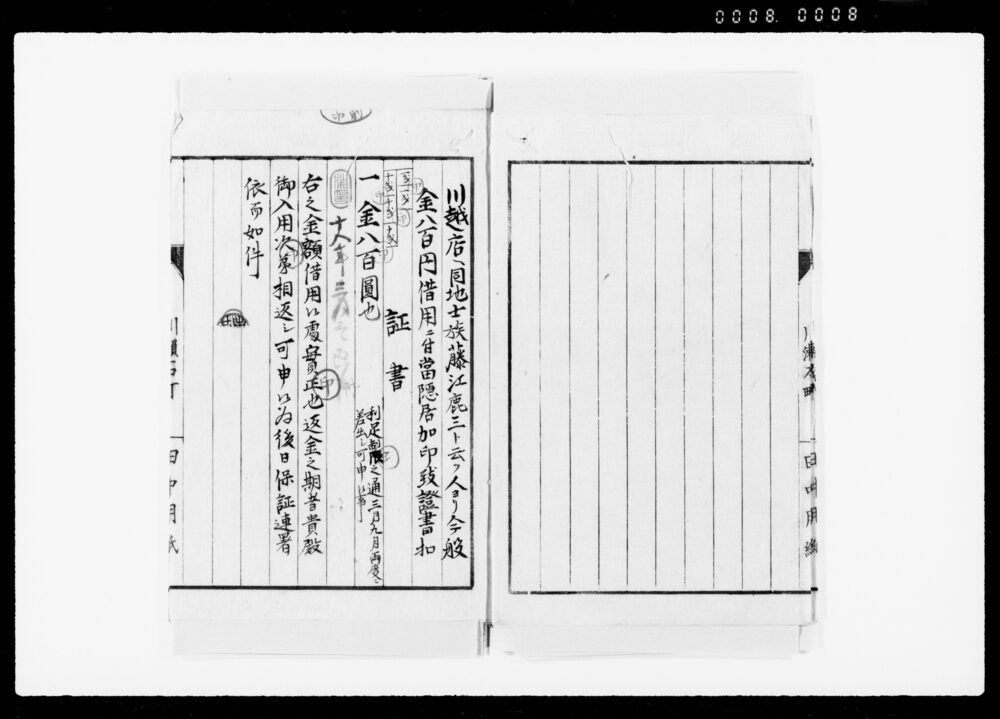 0008. 0008
川越店、同地士族藤江鹿三ト云フ人ヨリ今般
金八百円借用ニ付當隠居加印致證書扣
証書
一金八百圓也
利足制限之通三月九月両度ニ
差出シ可申候事
十八年三月
右之金額借用候處實正也返金之期者貴殿
御入用次第相返シ可申候為後日保証連署
依而如件
田中用紙